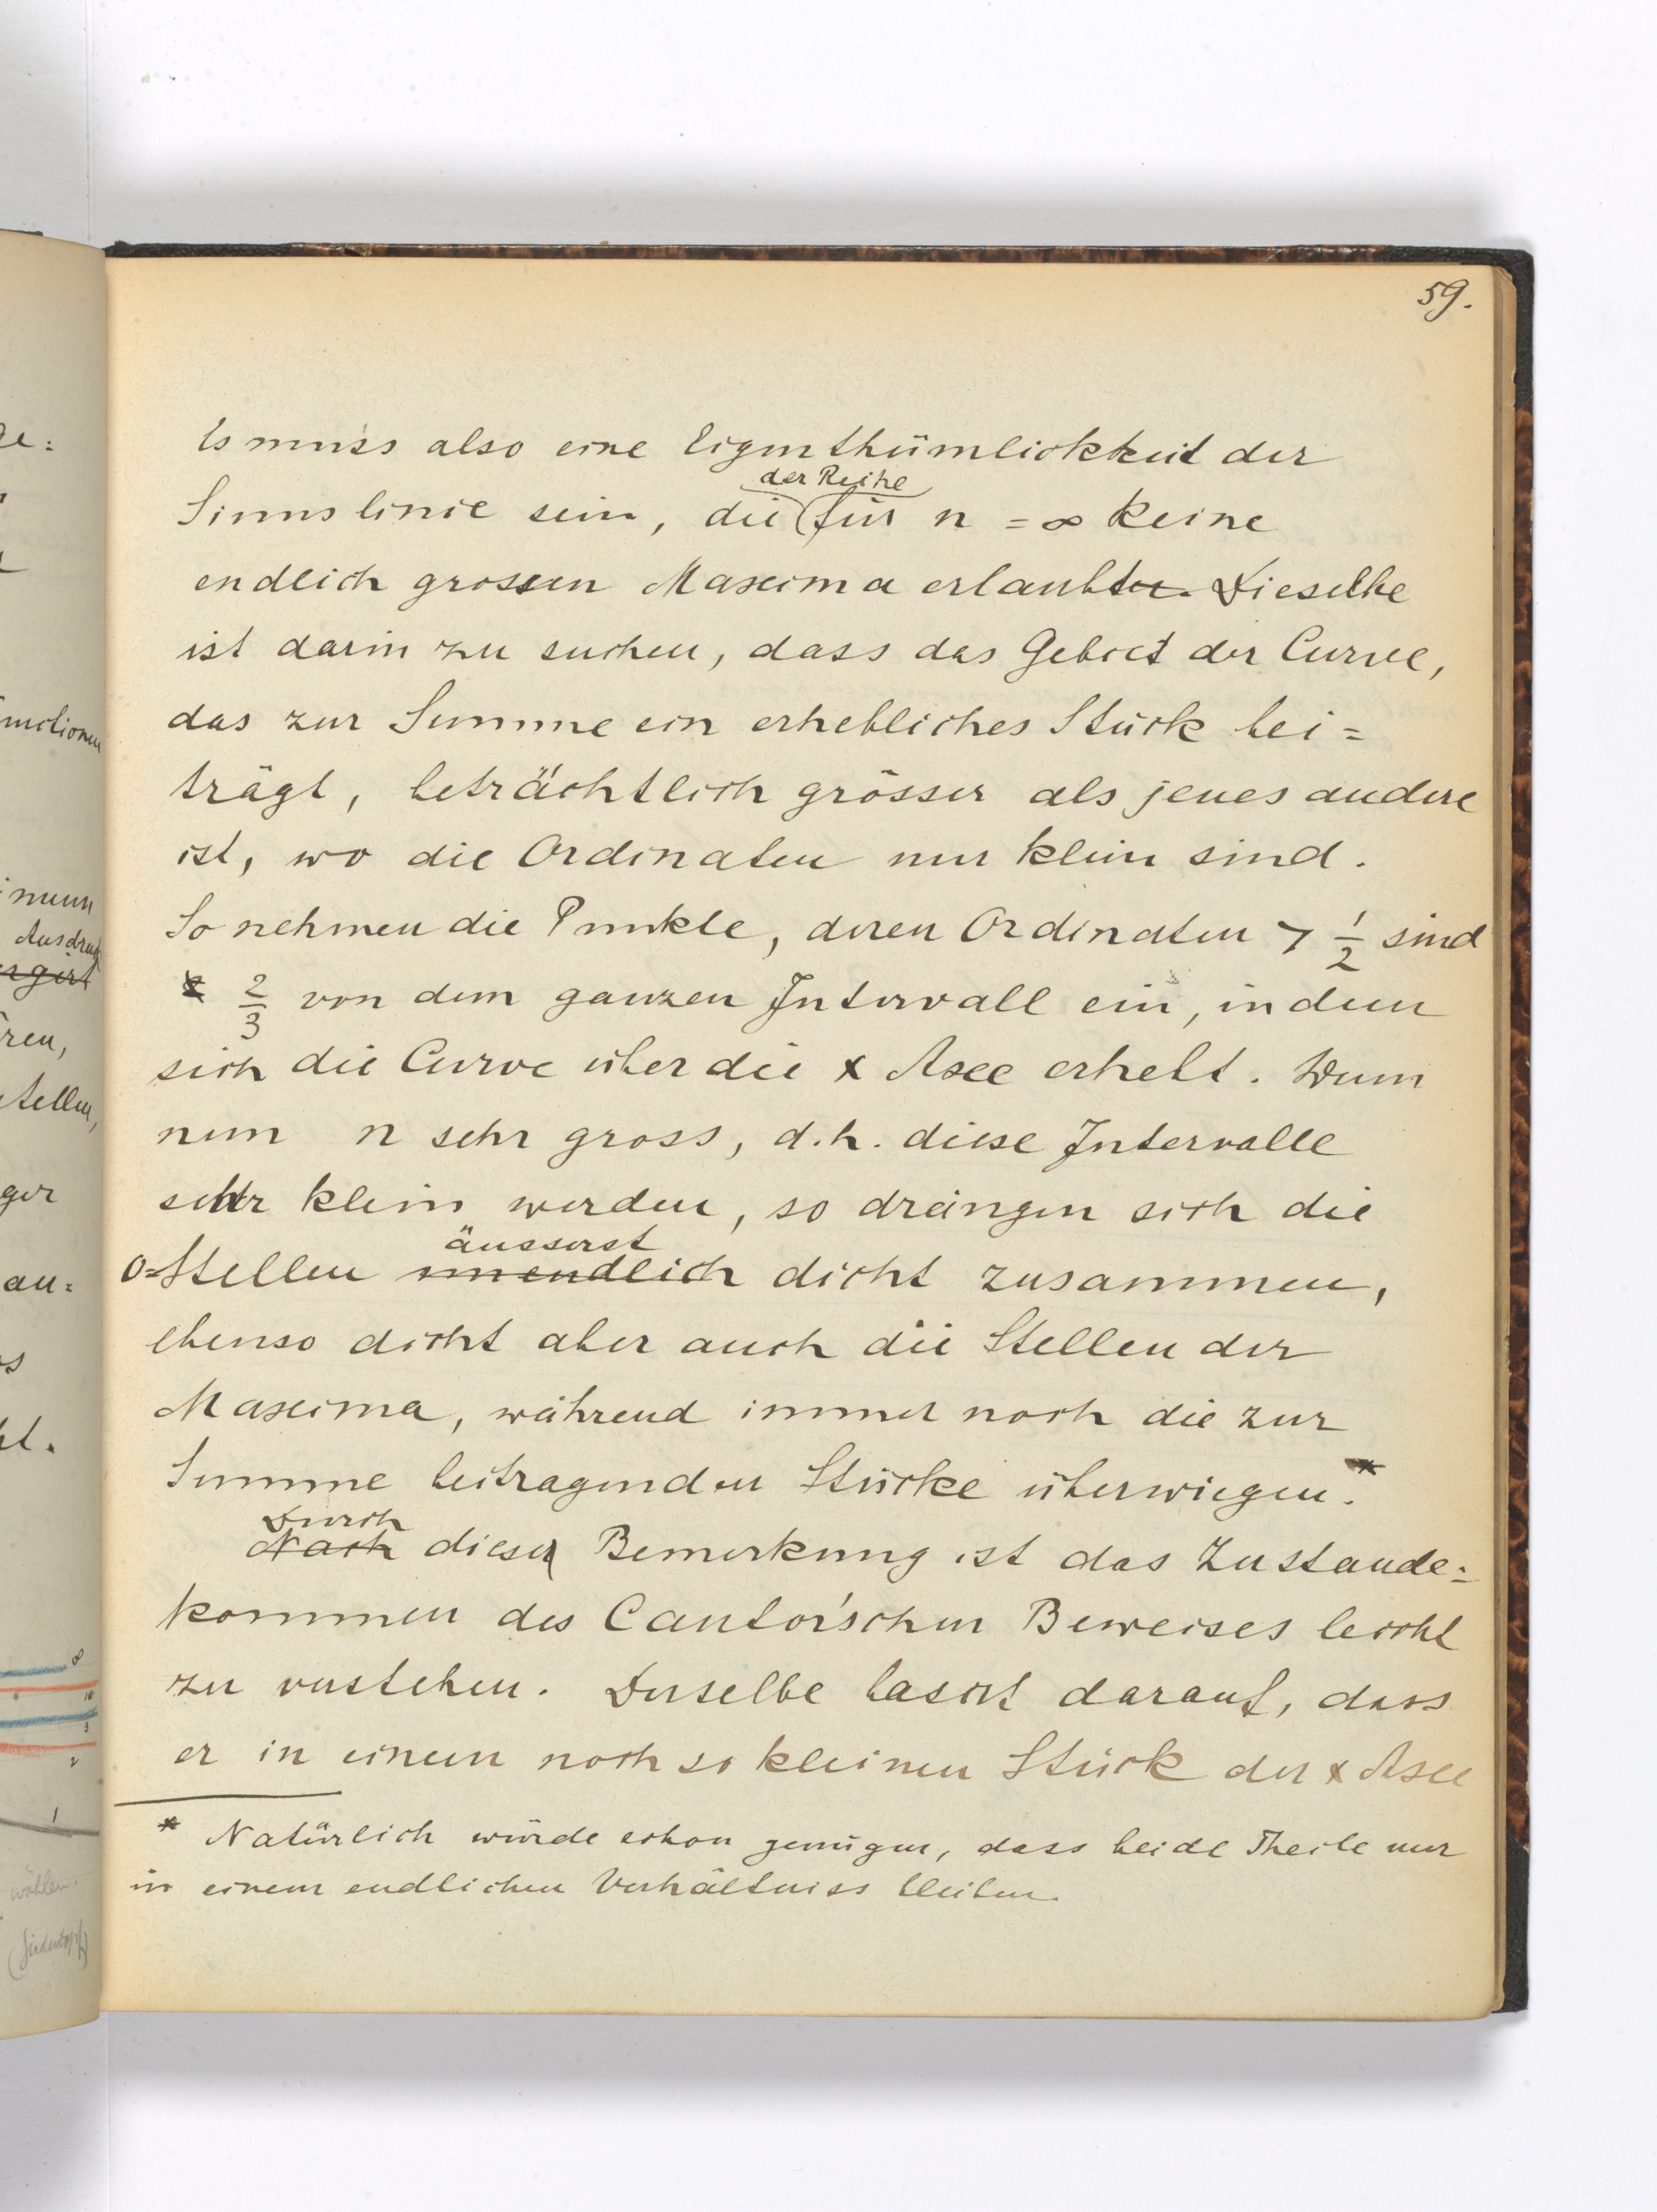 59.
Es muss also eine Eigenthümlichkeit der
der Reihe
Sinuslinie sein, die für n = ∞ keine
endlich grossen Maxima erlaubte. Dieselbe
ist darin zu suchen, dass das Gebiet der Curve,
das zur Summe ein erhebliches Stück bei=
trägt, beträchtlich grösser als jenes andere
ist, wo die Ordinaten nur klein sind.
So nehmen die Punkte, deren Ordinaten > 1/2 sind
2/3 von dem ganzen Intervall ein, in dem
sich die Curve über die x Axe erhebt. Wenn
nun n sehr gross, d.h. diese Intervalle
sehr klein werden, so drängen sich die
äusserst
0=Stellen unendlich dicht zusammen,
ebenso dicht aber auch die Stellen der
Maxima, während immer noch die zur
Summe beitragenden Stücke überwiegen.*
Durch
Nach dieser Bemerkung ist das Zustande=
kommen des Cantor'schen Beweises leicht
zu verstehen. Derselbe basirt darauf, dass
er in einem noch so kleinen Stück der x Axe
* Natürlich würde schon genügen, dass beide Theile nur
in einem endlichen Verhältniss bleiben.